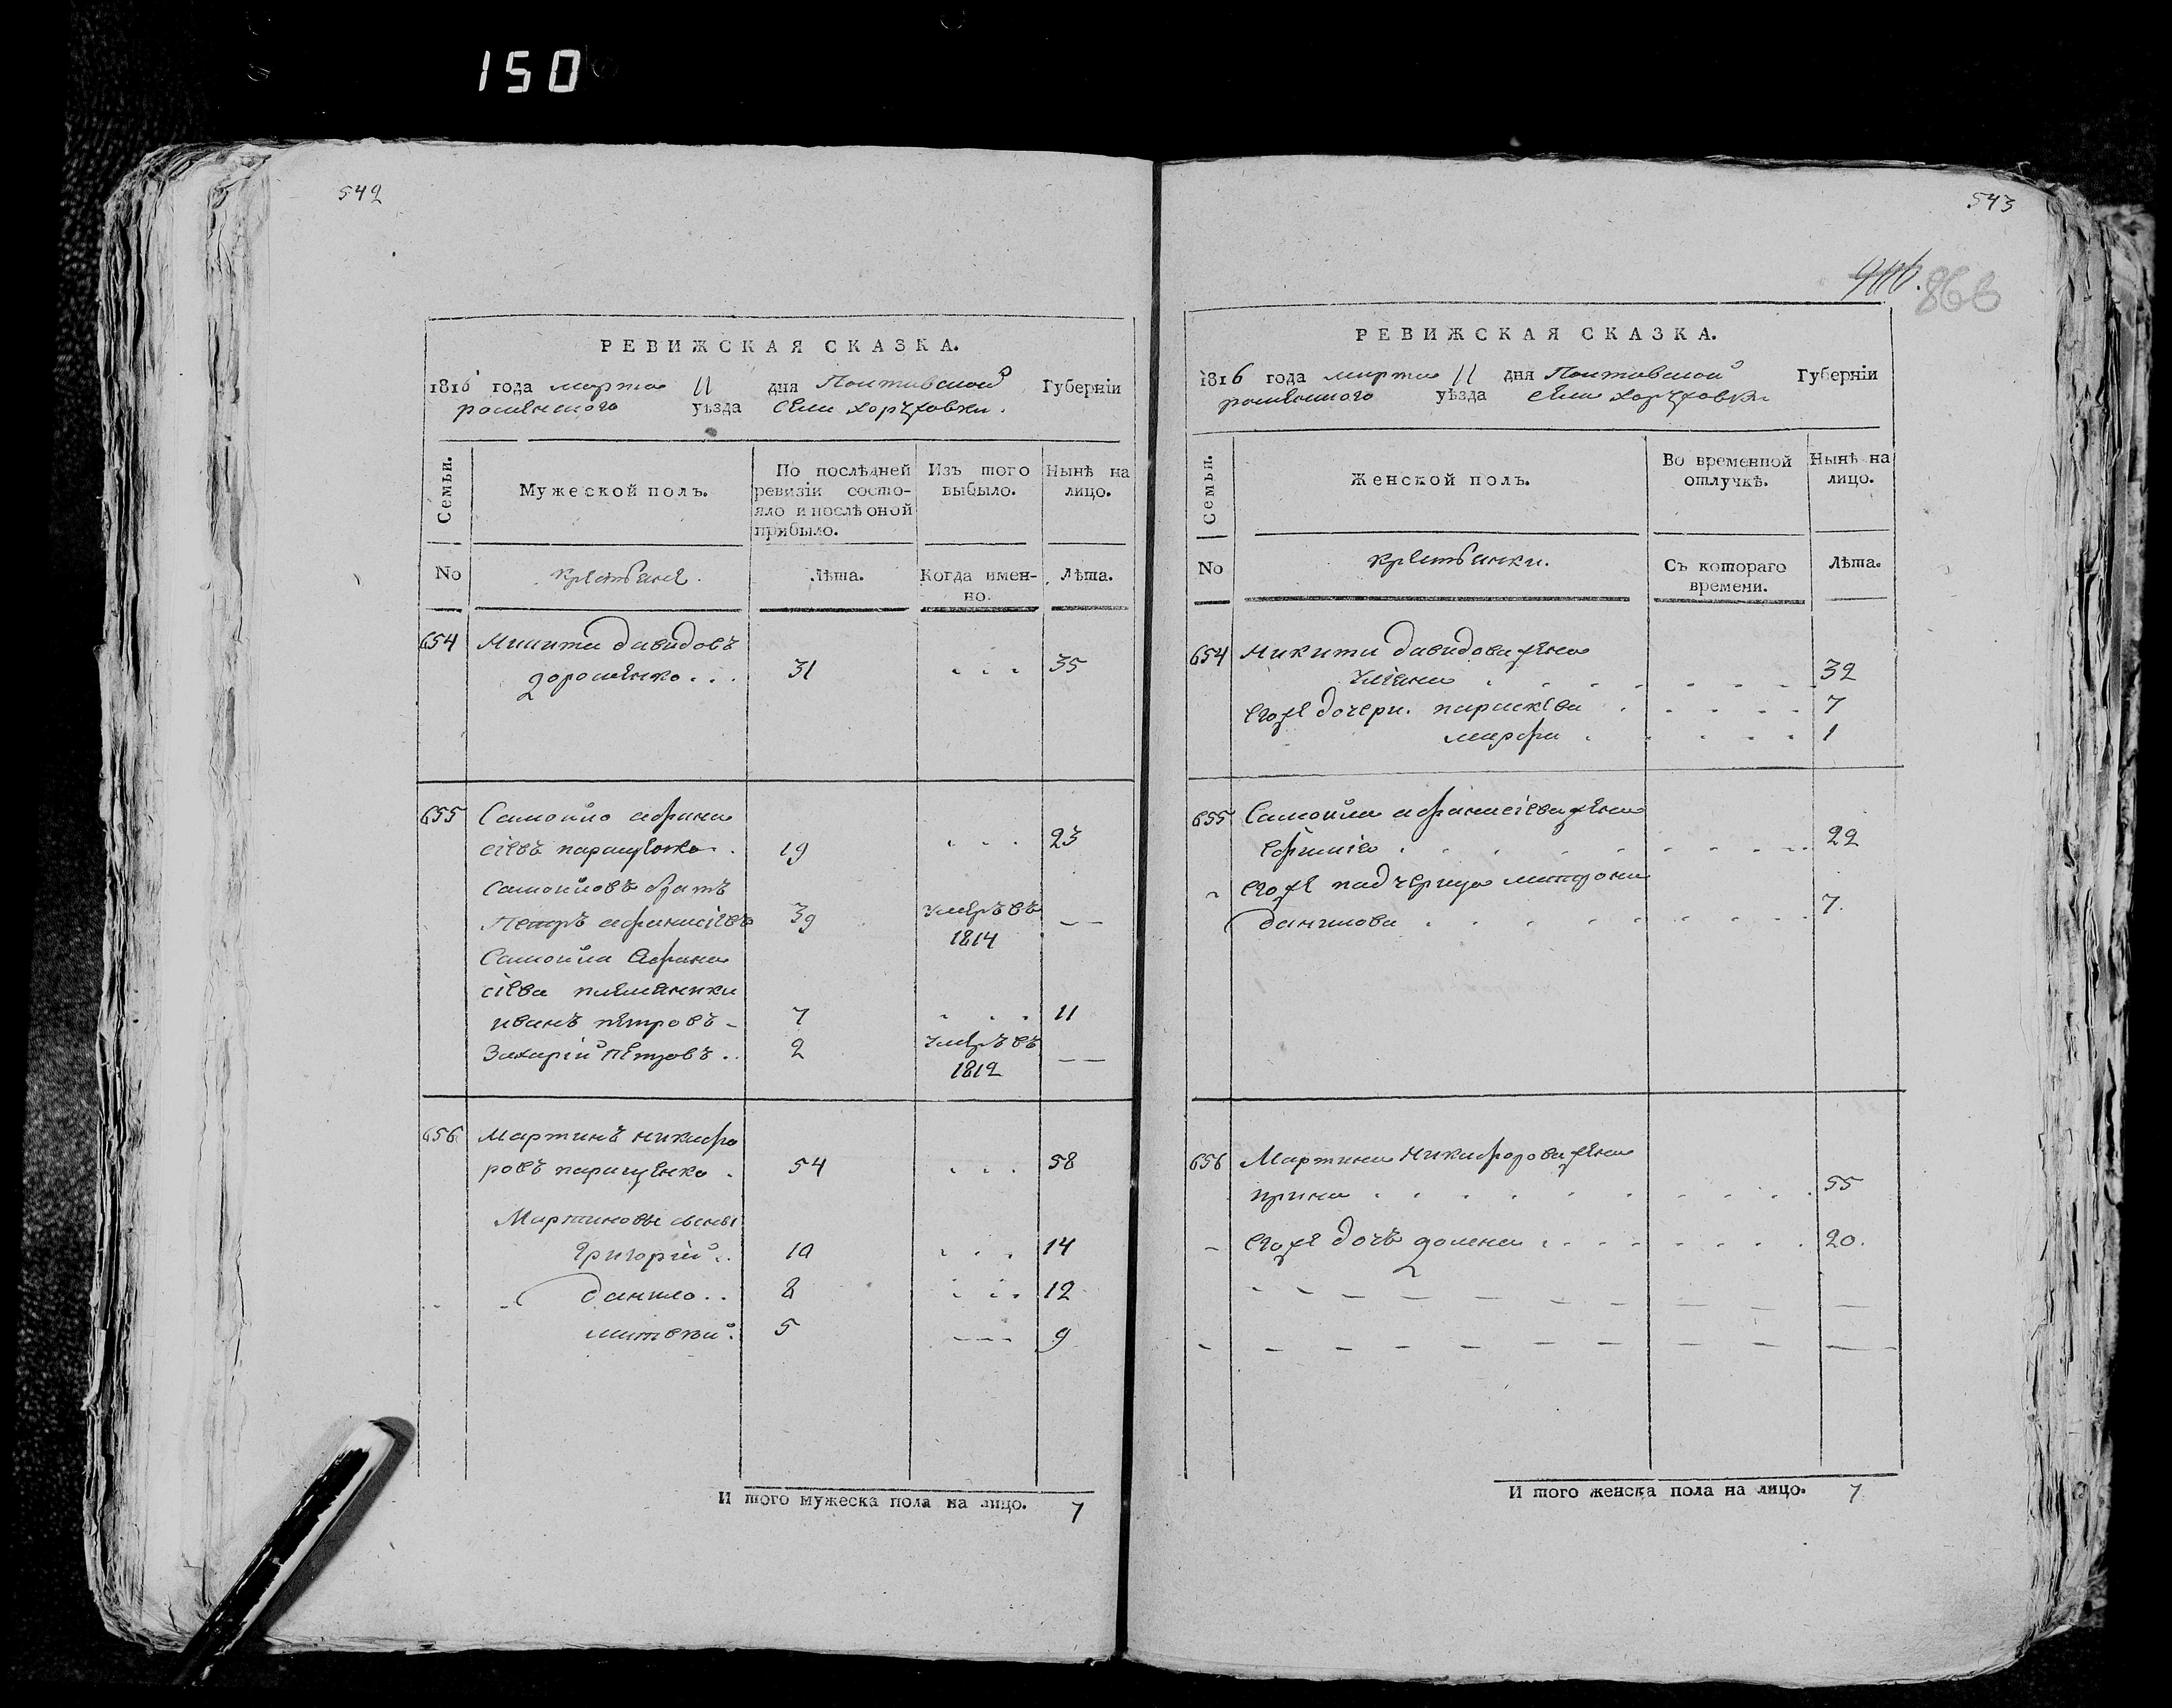 150
542
РЕВИЖСКАЯ СКАЗКА.
1816 года марта 11 дня Полтавской Губерніи
роменского уѣзда села хоружовки.
Семьи.
Мужеской полъ.
По послѣдней ревизіи состояло и послѣ оной прибыло.
Изъ того выбыло.
Нынѣ на лицо.
No
крестьяне.
Лѣта.
Когда именно.
Лѣта.
654 Микита давидовъ
дорошенко . . . 31 . . . 35
655 Самойло афана
сіевъ паращенко . 19 . . . 23
Самойловъ братъ
Петръ афанасіевъ 39 умеръ въ 1814 — —
Самойла Афана
сіева племянники
иванъ петровъ - 7 . . . 11
Захарій петровъ . . 2 умеръ въ 1812 — —
656 мартинъ никифо
ровъ паращенко . 54 . . . 58
Мартиновы сыны
григорій . . 10 . . . 14
данило . . 8 . . . 12
матвей . 5 — — 9
И того мужеска пола на лицо. 7
543
866
РЕВИЖСКАЯ СКАЗКА.
1816 года марта 11 дня Полтавской Губерніи
роменского уѣзда села хоружовки
Семьи.
Женской полъ.
Во временной отлучкѣ.
Нынѣ на лицо.
No
крестьянки.
Съ котораго времени.
Лѣта.
654 Микити давидова жена
Уліяна . . . 32
егоже дочери. параскева . . . 7
марфа . . . 1
655 Самойла афанасіева жена
ефимія . . . 22
егоже падчерица
данилова . . . 7.
656 Мартина Никифорова жена
ирина . . . 55
егоже дочъ домна . . . 20.
И того женска пола на лицо. 7